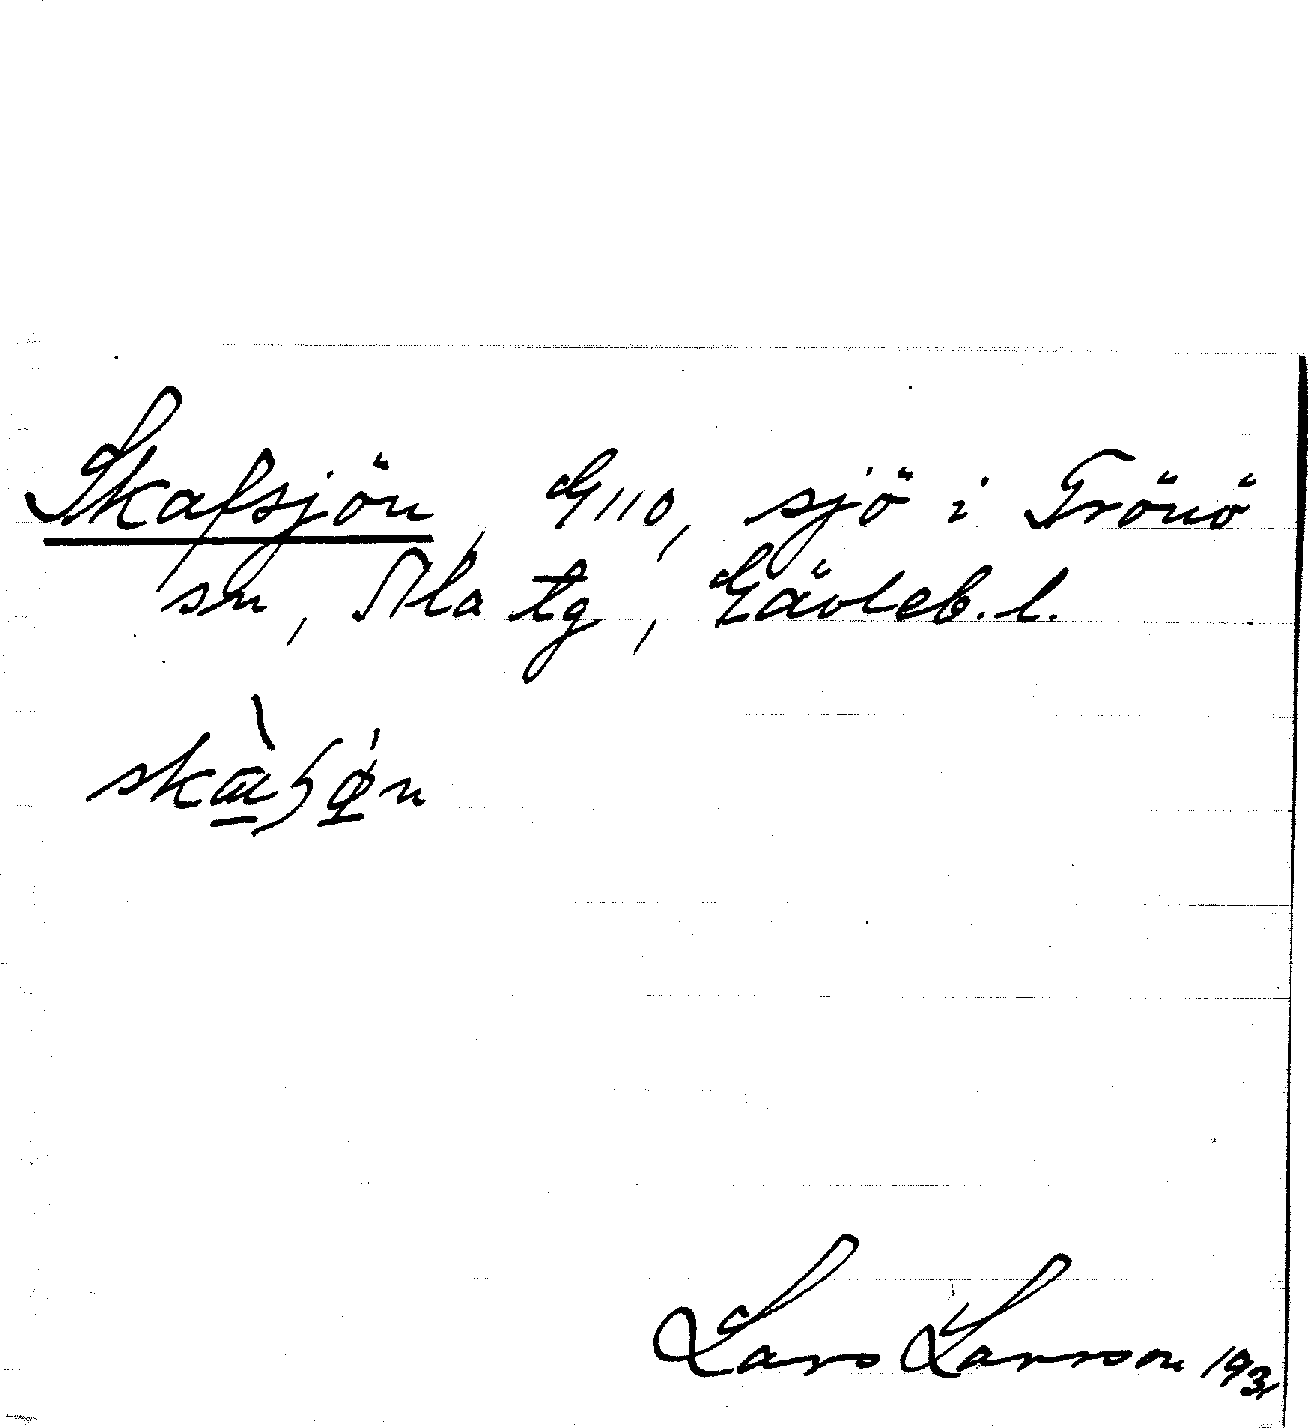 Skafsjön, G110, sjö i Trönö
sn, Ala tg, Gävleb. l.
Lars Larsson 1931